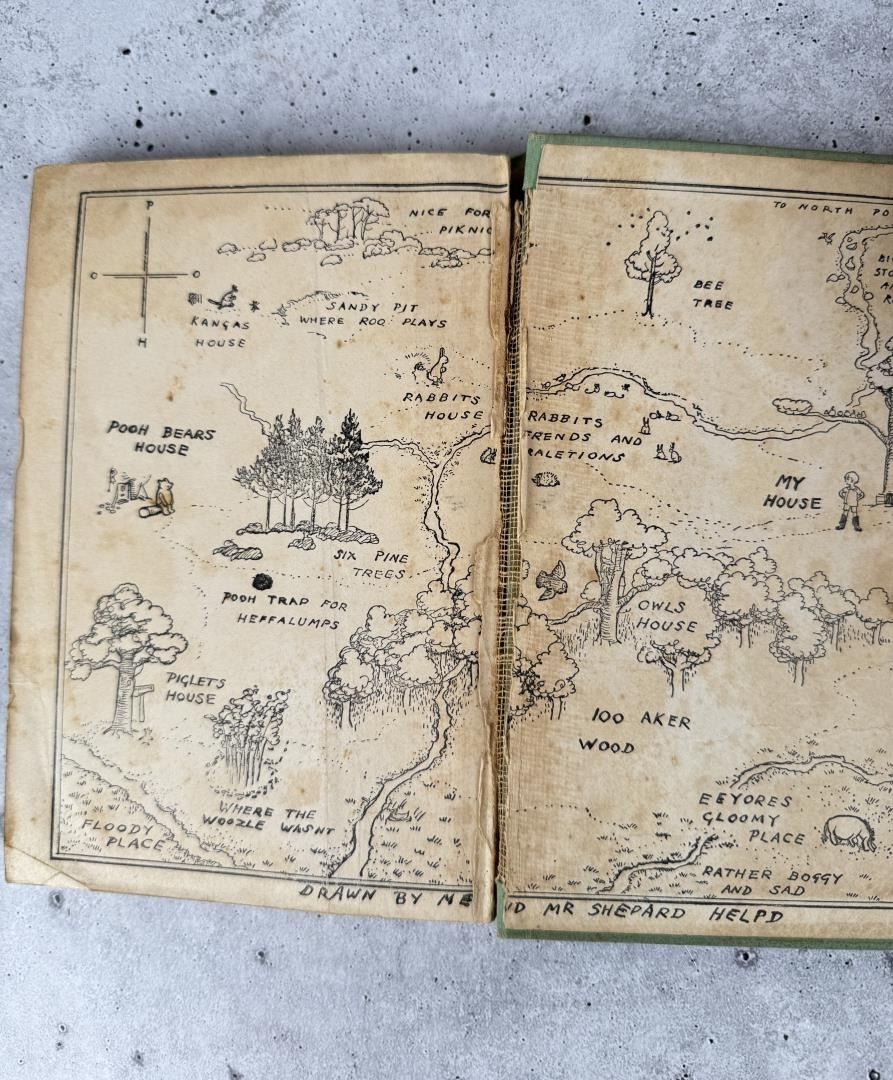 P
C
O
H
NICE FOR
PIKNIC
TO NORTH PO
KANGAS
HOUSE
SANDY PIT
WHERE ROO PLAYS
BEE
TREE
RABBITS
HOUSE
POOH BEARS
HOUSE
RABBITS
FRENDS AND
RALETIONS
MY
HOUSE
SIX PINE
TREES
POOH TRAP FOR
HEFFALUMPS
OWLS
HOUSE
PIGLETS
HOUSE
100 AKER
WOOD
WHERE THE
WOOZLE WASNT
FLOODY
PLACE
EEYORES
GLOOMY
PLACE
RATHER BOGGY
AND SAD
DRAWN BY ME ND MR SHEPARD HELPD